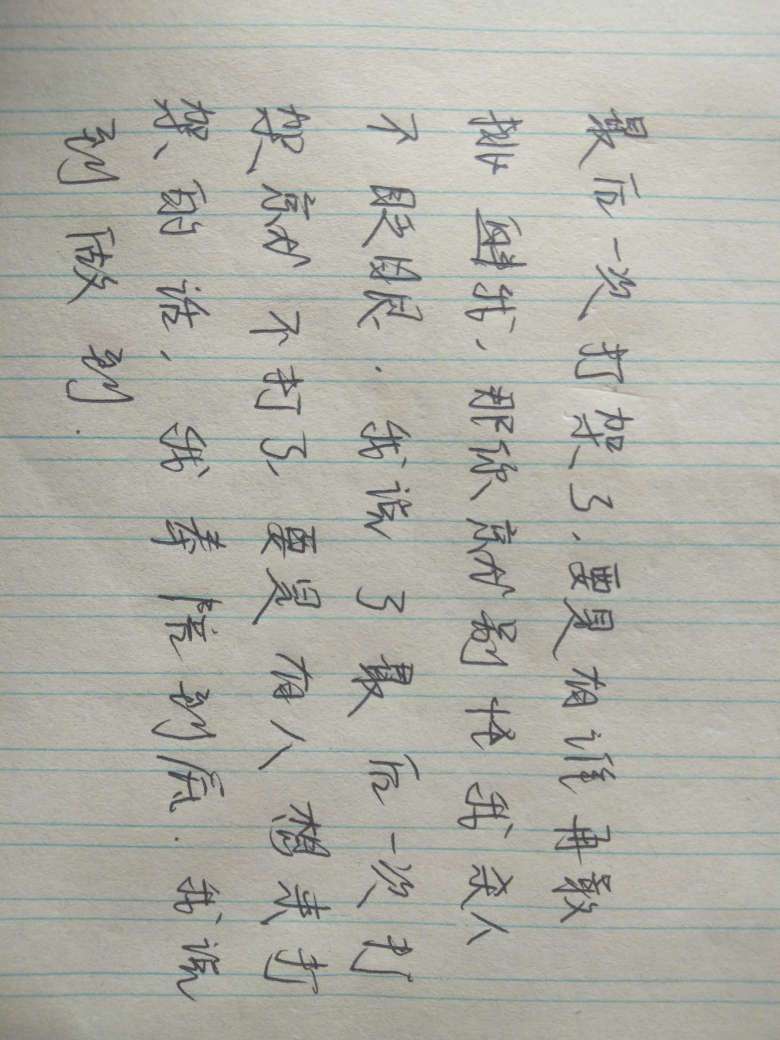 最后一次打架了、要是有谁再敢
挑衅我、那你就别怪我杀人
不眨眼.我说了最后一次打
架、就不打了、要是有人想来打
架、的话、我奉陪到底.我说
到做到.